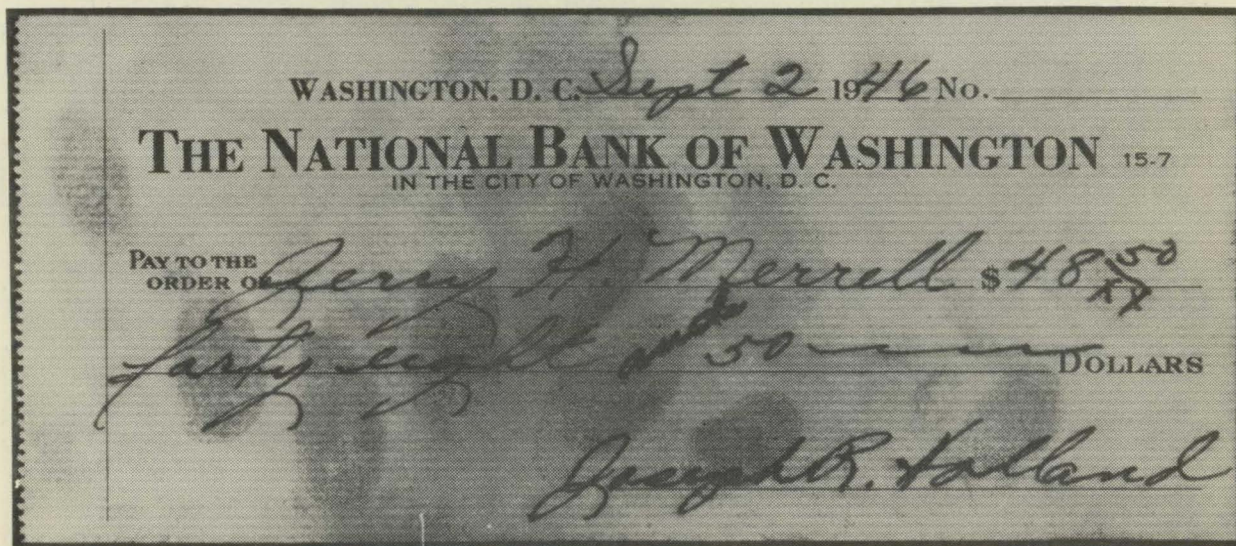 WASHINGTON, D. C. Sept 2 1946 No.
THE NATIONAL BANK OF WASHINGTON 15-7
IN THE CITY OF WASHINGTON, D. C.
PAY TO THE
ORDER OF Jerry H. Merrell $ 48 50/xx
forty eight and 50 DOLLARS
Joseph R. Holland